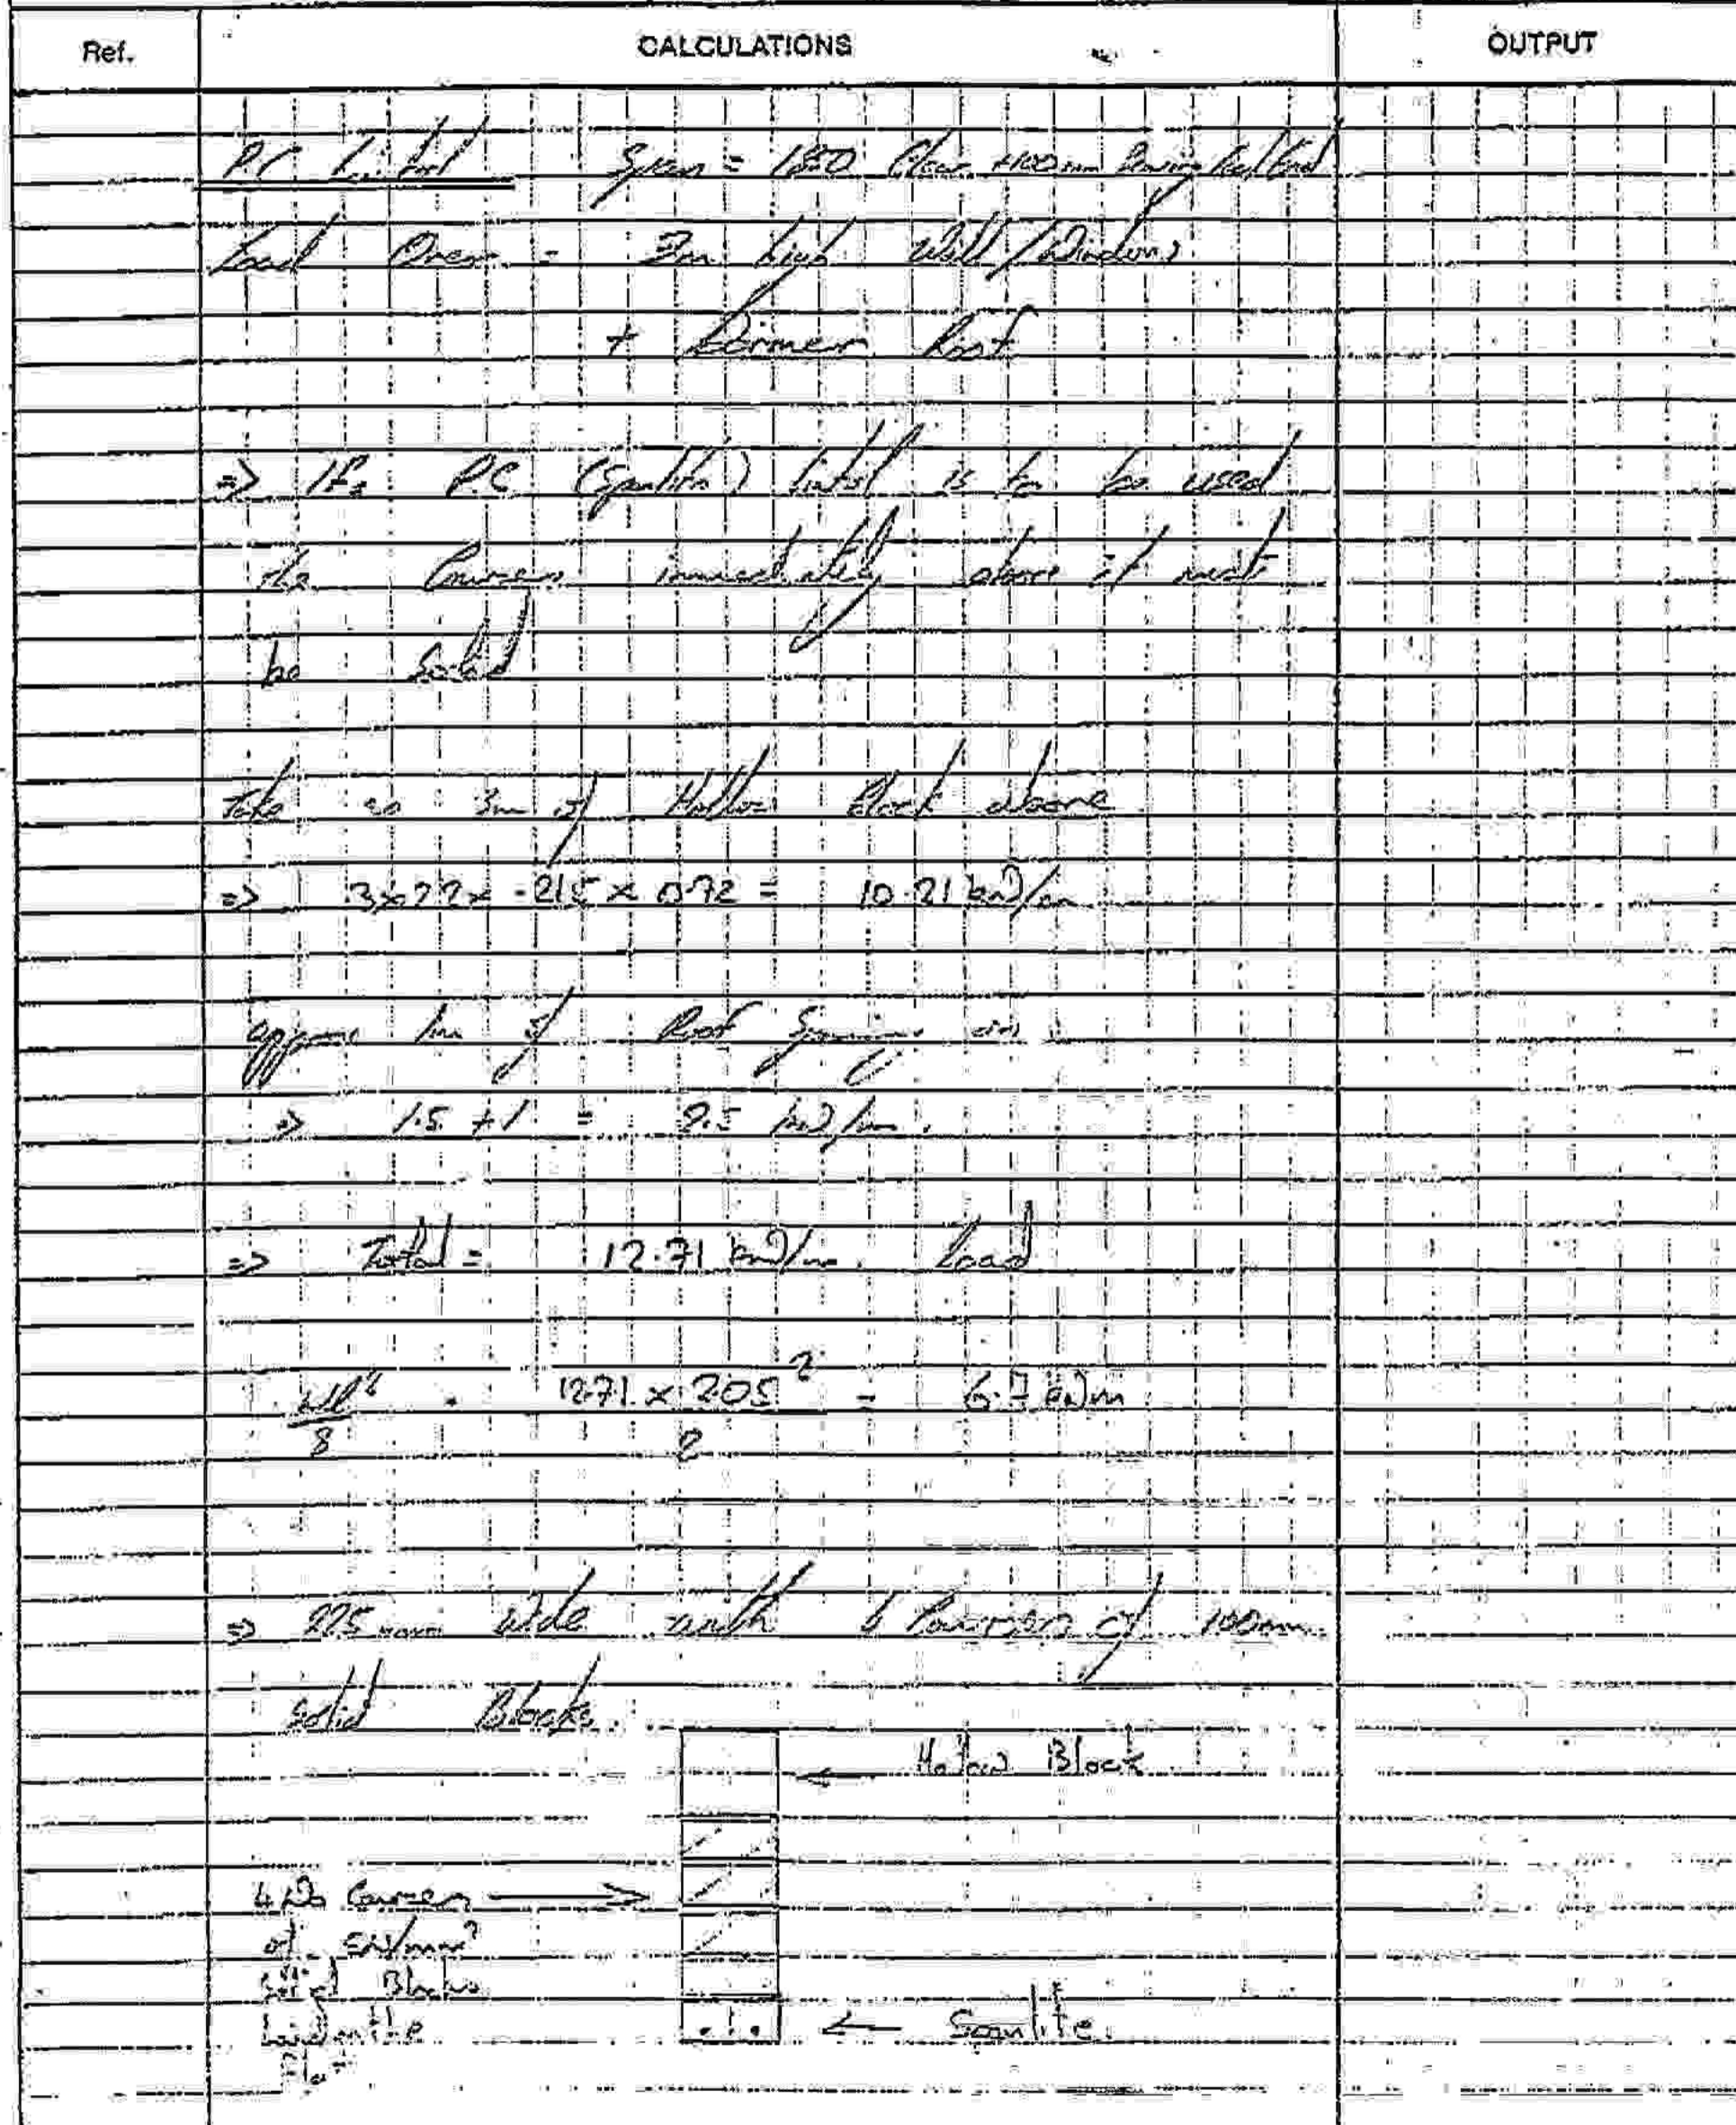 Ref. CALCULATIONS OUTPUT
P.C Lintol Span = 1850 Clear +100mm Bearing Each End
Load Over = 3m high Wall/Windows
+ Dormer Roof
=> If P.C (Spanlite) Lintol is to be used
the Courses immediately above it must
be Solid
Take as 3m of Hollow Block above
=> 3x22x .215 x 0.72 = 10.21 kN/m
approx 1m of Roof Spanning on
=> 1.5 + 1 = 2.5 kN/m.
=> Total = 12.71 kN/m. Load
wl²/8 = 12.71 x 2.05² / 8 = 6.7 kNm
=> 225mm Wide with 4 Courses of 100mm
Solid Blocks.
← Hollow Block
4 No Courses →
of 5N/mm²
Solid Blocks
Laid on the
Flat
← Spanlite.